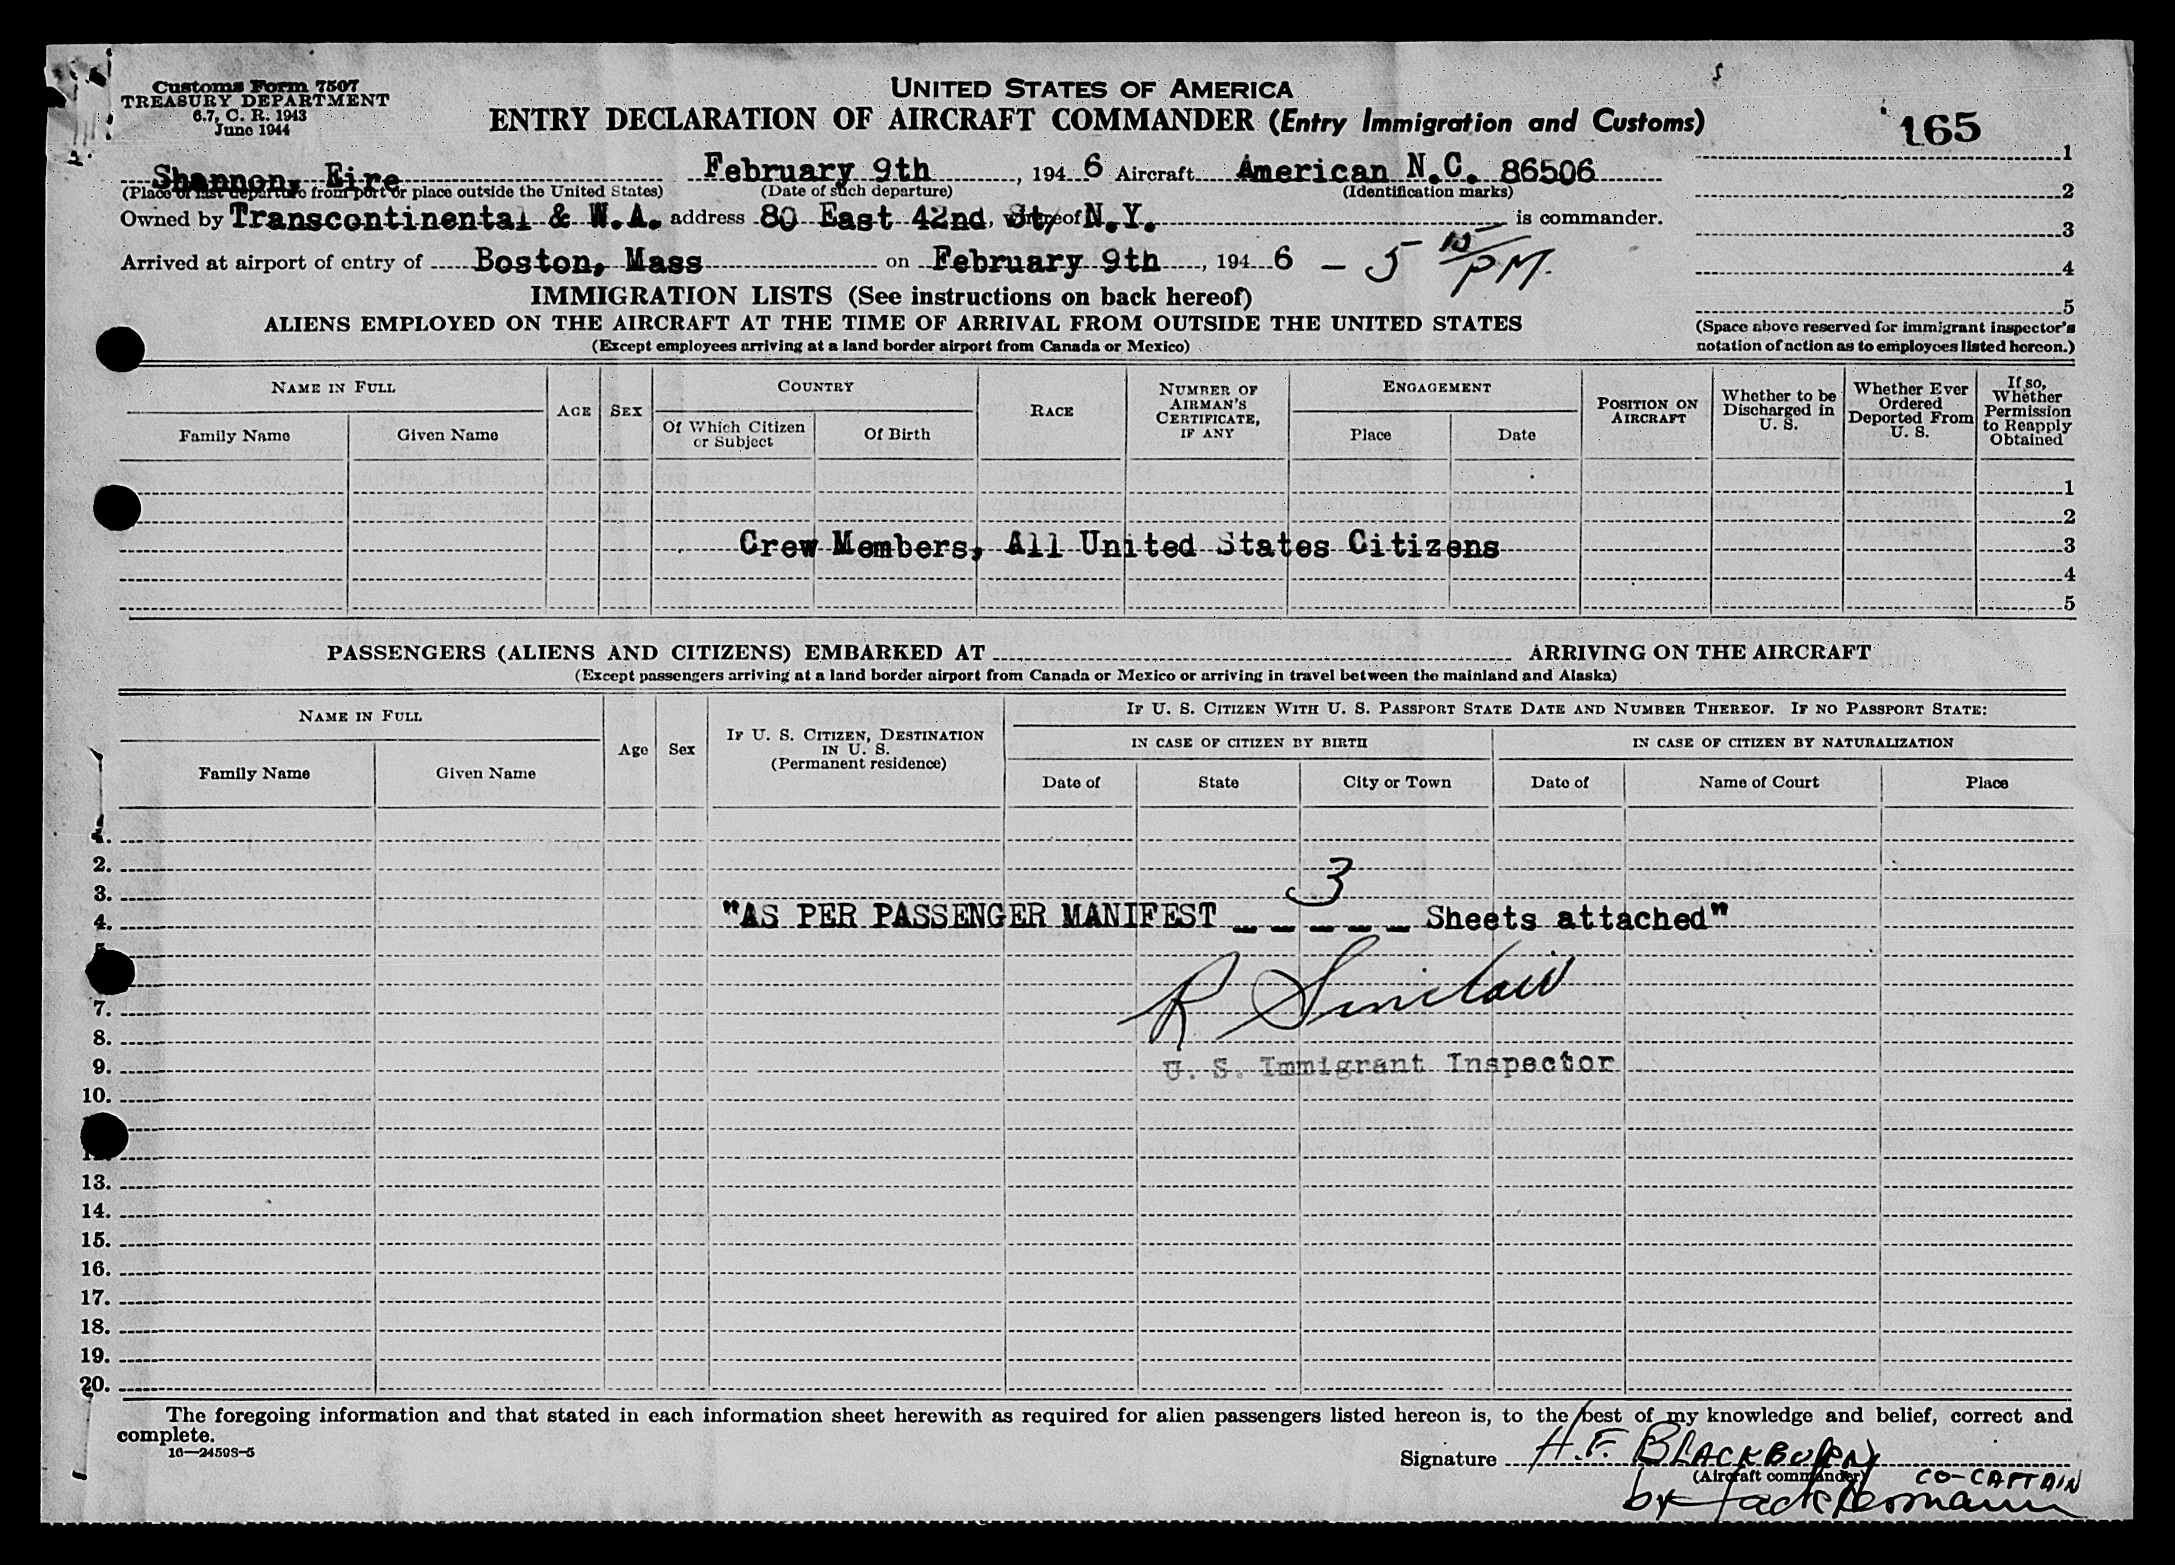 Customs Form 7507
TREASURY DEPARTMENT
6.7, C. R. 1943
June 1944
UNITED STATES OF AMERICA
ENTRY DECLARATION OF AIRCRAFT COMMANDER (Entry Immigration and Customs)
165
Shannon, Eire February 9th, 194 6 Aircraft American N.C. 86506
(Place of last departure from port or place outside the United States) (Date of such departure) (Identification marks)
Owned by Transcontinental & W.A. address 80 East 42nd, St, N.Y. is commander.
Arrived at airport of entry of Boston, Mass on February 9th, 194 6 – 5 15 PM.
1
2
3
4
5
(Space above reserved for immigrant inspector's
notation of action as to employees listed hereon.)
IMMIGRATION LISTS (See instructions on back hereof)
ALIENS EMPLOYED ON THE AIRCRAFT AT THE TIME OF ARRIVAL FROM OUTSIDE THE UNITED STATES
(Except employees arriving at a land border airport from Canada or Mexico)
NAME IN FULL
Family Name Given Name
AGE SEX
COUNTRY
Of Which Citizen or Subject Of Birth
RACE
NUMBER OF AIRMAN'S CERTIFICATE, IF ANY
ENGAGEMENT
Place Date
POSITION ON AIRCRAFT
Whether to be Discharged in U. S.
Whether Ever Ordered Deported From U. S.
If so, Whether Permission to Reapply Obtained
1
2
Crew Members, All United States Citizens 3
4
5
PASSENGERS (ALIENS AND CITIZENS) EMBARKED AT ARRIVING ON THE AIRCRAFT
(Except passengers arriving at a land border airport from Canada or Mexico or arriving in travel between the mainland and Alaska)
NAME IN FULL
Family Name Given Name
Age Sex
IF U. S. CITIZEN, DESTINATION IN U. S.
(Permanent residence)
IF U. S. CITIZEN WITH U. S. PASSPORT STATE DATE AND NUMBER THEREOF. IF NO PASSPORT STATE:
IN CASE OF CITIZEN BY BIRTH IN CASE OF CITIZEN BY NATURALIZATION
Date of State City or Town Date of Name of Court Place
1.
2.
3. 3
4. "AS PER PASSENGER MANIFEST _ _ _ _ _ Sheets attached"
R Sinclair
7.
8.
9. U. S. Immigrant Inspector
10.
13.
14.
15.
16.
17.
18.
19.
20.
The foregoing information and that stated in each information sheet herewith as required for alien passengers listed hereon is, to the best of my knowledge and belief, correct and
complete.
16—24598-5
Signature H.F. BLACKBURN
(Aircraft commander) CO-CAPTAIN
by Jack